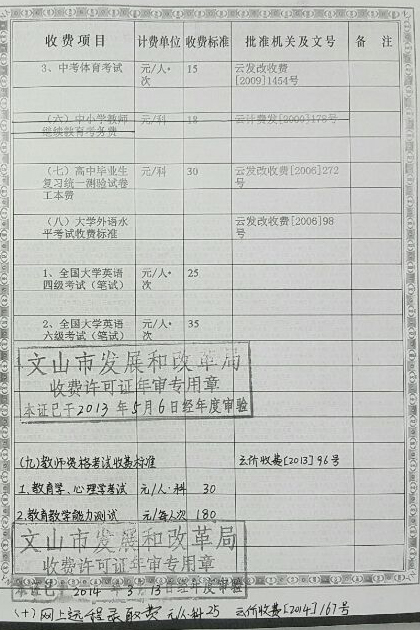 收费项目 计费单位 收费标准 批准机关及文号 备 注
3、中考体育考试 元/人· 15 云发改收费
次 [2009]1454号
(六)中小学教师 元/科 18 云计费发[2000]178号
继续教育考务费
(七)高中毕业生 元/科 30 云发改收费[2006]272
复习统一测验试卷 号
工本费
(八)大学外语水 云发改收费[2006]98
平考试收费标准 号
1、全国大学英语 元/人· 25
四级考试(笔试) 次
2、全国大学英语 元/人· 35
六级考试(笔试) 次
文山市发展和改革局
收费许可证年审专用章
本证已于2013年5月6日经年度审验
(九)教师资格考试收费标准 云价收费[2013]96号
1.教育学、心理学考试 元/人·科 30
2.教育教学能力测试 元/每人次 180
文山市发展和改革局
收费许可证年审专用章
本证已于2014年3月13日经年度审验
(十)网上远程录取费 元/人·科 25 云价收费[2014]167号